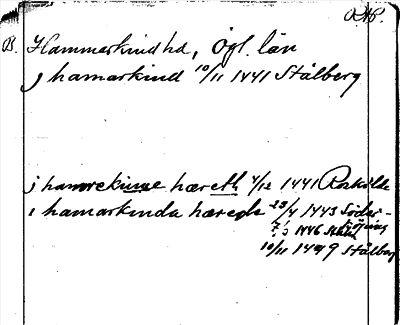 RAP.
B. Hammarkind hd, Ögl. län
J hamarkind 10/11 1441 Stålberg
j hamrekinne hæreth 4/12 1441 Roskilde
i hamarkinda hærede 23/4 1443 Söder-
köping
1446
10/11 1449 Stålberg